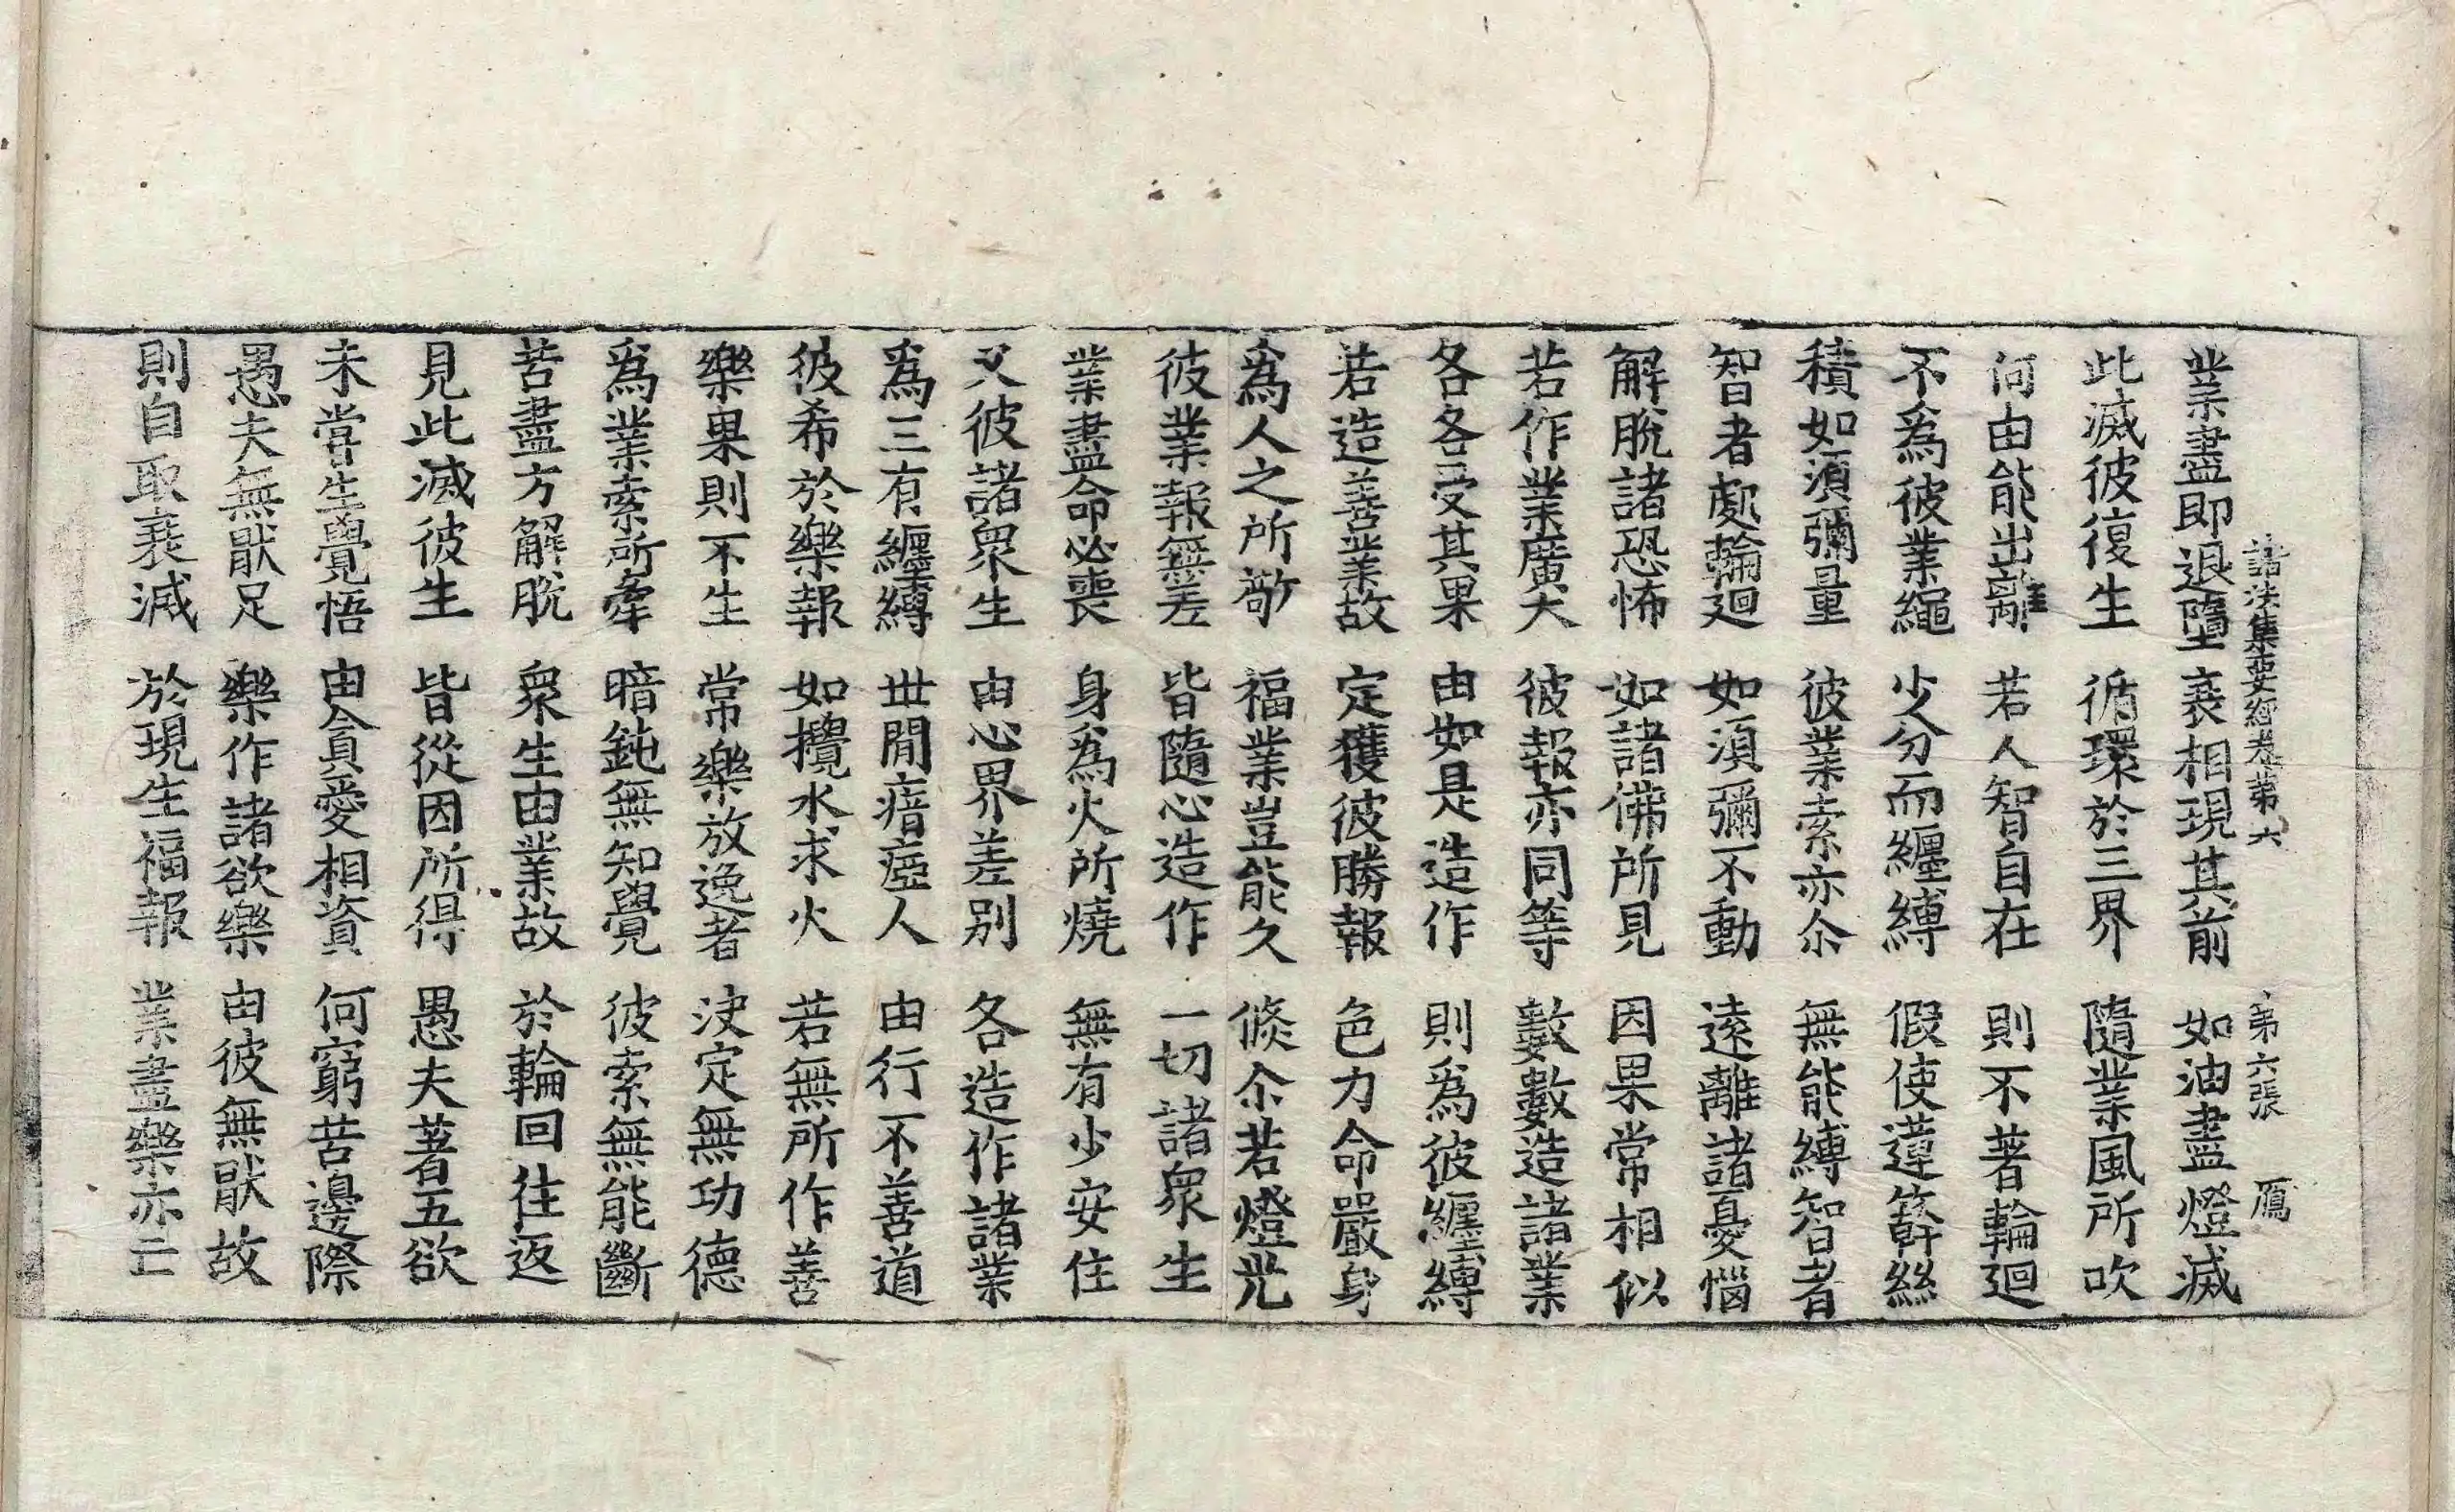 諸法集要經卷第六　第六張　鴈
業盡即退墮　衰相現其前　如油盡燈滅
此滅彼復生　循環於三界　隨業風所吹
何由能出離　若人智自在　則不著輪迴
不爲彼業繩　少分而纏縛　假使薘簳絲
積如須彌量　彼業索亦尒　無能縛智者
智者處輪迴　如須彌不動　遠離諸憂惱
解脫諸恐怖　如諸佛所見　因果常相似
若作業廣大　彼報亦同等　數數造諸業
各各受其果　由如是造作　則爲彼纏縛
若造善業故　定獲彼勝報　色力命嚴身
爲人之所敬　福業豈能久　倐尒若燈光
彼業報無差　皆隨心造作　一切諸衆生
業盡命必喪　身爲火所燒　無有少安住
又彼諸衆生　由心界差別　各造作諸業
爲三有纏縛　丗閒瘖瘂人　由行不善道
彼希於樂報　如攪水求火　若無所作善
樂果則不生　常樂放逸者　決定無功德
爲業索所牽　暗鈍無知覺　彼索無能斷
苦盡方解脫　衆生由業故　於輪回往返
見此滅彼生　皆從因所得　愚夫著五欲
未甞生覺悟　由貪愛相資　何窮苦邊際
愚夫無猒足　樂作諸欲樂　由彼無猒故
則自取衰減　於現生福報　業盡樂亦亡